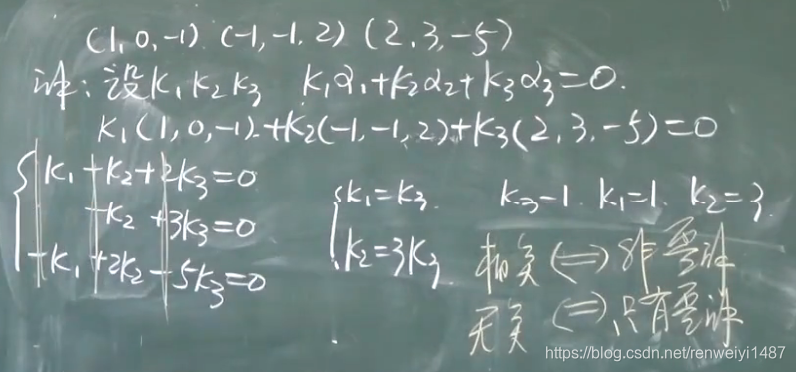 (1,0,-1) (-1,-1,2) (2,3,-5)
证:设K₁K₂K₃ K₁α₁+K₂α₂+K₃α₃=0.
K₁(1,0,-1)+K₂(-1,-1,2)+K₃(2,3,-5)=0
K₁+K₂+2K₃=0
-K₂+3K₃=0
-K₁+2K₂-5K₃=0
K₁=K₃
K₂=3K₃
K₃=1. K₁=1. K₂=3.
相关⟺非零解
无关⟺只有零解
https://blog.csdn.net/renweiyi1487